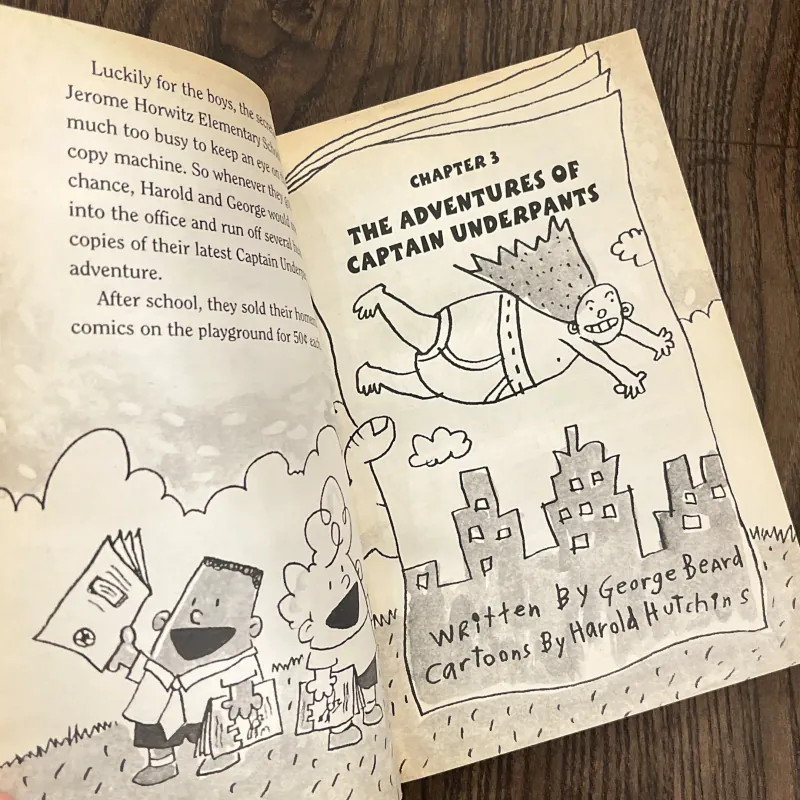 Luckily for the boys, the
Jerome Horwitz Elementary
much too busy to keep an eye on
copy machine. So whenever they
chance, Harold and George would
into the office and run off several
copies of their latest Captain
adventure.
After school, they sold their
comics on the playground for 50¢ each.
CHAPTER 3
THE ADVENTURES OF
CAPTAIN UNDERPANTS
WRitten BY GeoRge BeARd
CaRtoons By HaRold HutchinS